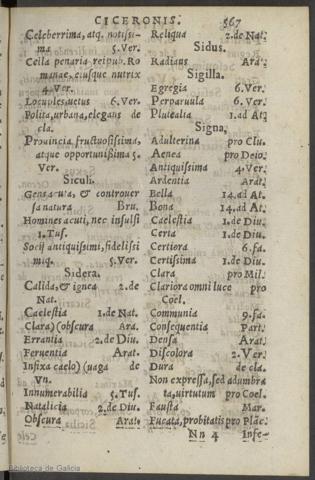 CICERONIS. 567
Celeberrima, atq. notissi-
ma 5.Ver.
Cella penaria reipub. Ro
manae, eiusque nutrix
4.Ver.
Locuples, uetus 6.Ver.
Polita, urbana, elegans de
cla.
Prouincia, fructuosissima,
atque opportunissima 5.
Ver.
Siculi.
Gens acuta, & controuer
sa natura Bru.
Homines acuti, nec insulsi
1.Tus.
Socij antiquissimi, fidelissi
miq. 5.Ver.
Sidera.
Calida, & ignea 2.de
Nat.
Caelestia 1.de Nat.
Clara) (obscura Ara.
Errantia 2.de Diu.
Feruentia Arat.
Infixa caelo) (uaga de
Vn.
Innumerabilia 5.Tus.
Natalicia 2.de Diu.
Obscura Arat.
Reliqua 2.de Nat.
Sidus.
Radians Arat.
Sigilla.
Egregia 6.Ver.
Perparuula 6.Ver.
Putealia 1.ad At.
Signa,
Adulterina pro Clu.
Aenea pro Deio.
Antiquissima 4.Ver.
Ardentia Arat.
Bella 14.ad At.
Bona 14.ad At.
Caelestia 1.de Diu.
Certa 1.de Diu.
Certiora 6.fa.
Certissima 1.de Diu.
Clara pro Mil.
Clariora omni luce pro
Coel.
Communia 9.fa.
Consequentia Part.
Densa Arat.
Discolora 2.Ver.
Dura de cla.
Non expressa, sed adumbra
ta, uirtutum pro Coel.
Fausta Mar.
Fucata, probitatis pro Plāc.
Nn 4 Infe-
Biblioteca de Galicia